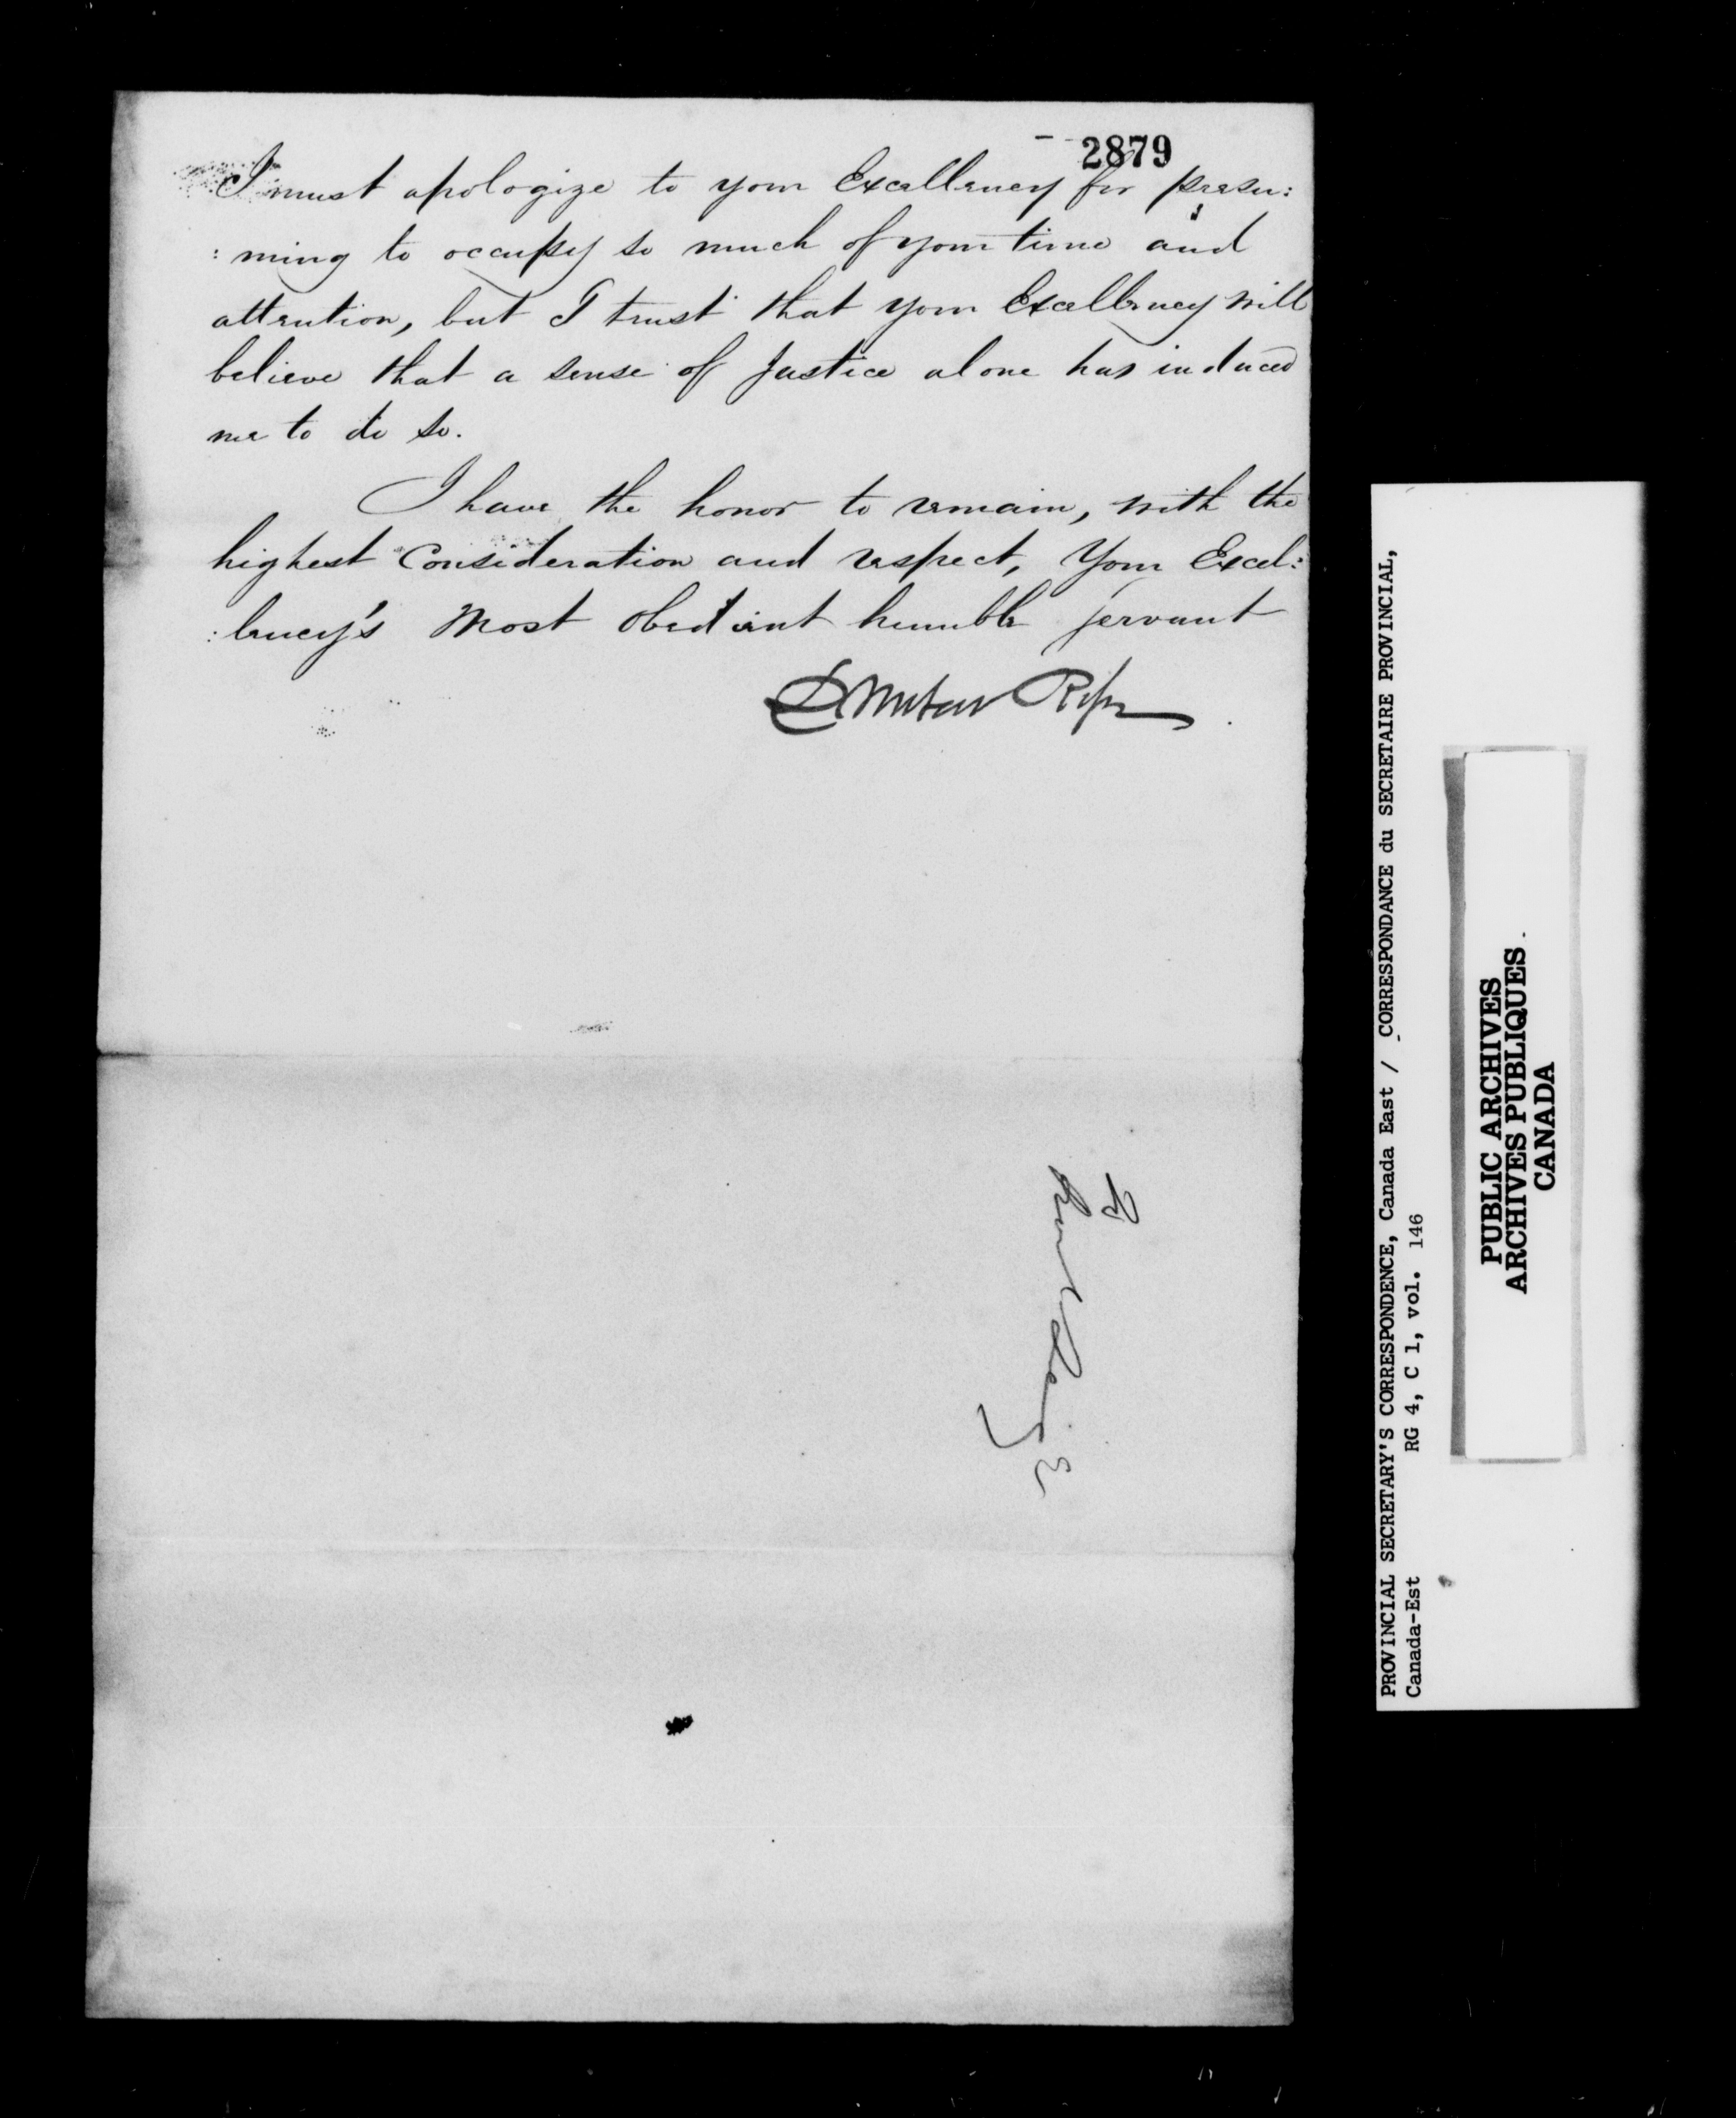 2879
I must apologize to your Excellency for presu:
:ming to occupy so much of your time and
attention, but I trust that your Excellency will
believe that a sense of Justice alone has induced
me to do so.
I have the honor to remain, with the
highest Consideration and respect, Your Excel:
:lency's Most Obedient humble servant
PROVINCIAL SECRETARY'S CORRESPONDENCE, Canada East / CORRESPONDANCE du SECRETAIRE PROVINCIAL,
Canada-Est RG 4, C 1, vol. 146
PUBLIC ARCHIVES
ARCHIVES PUBLIQUES
CANADA